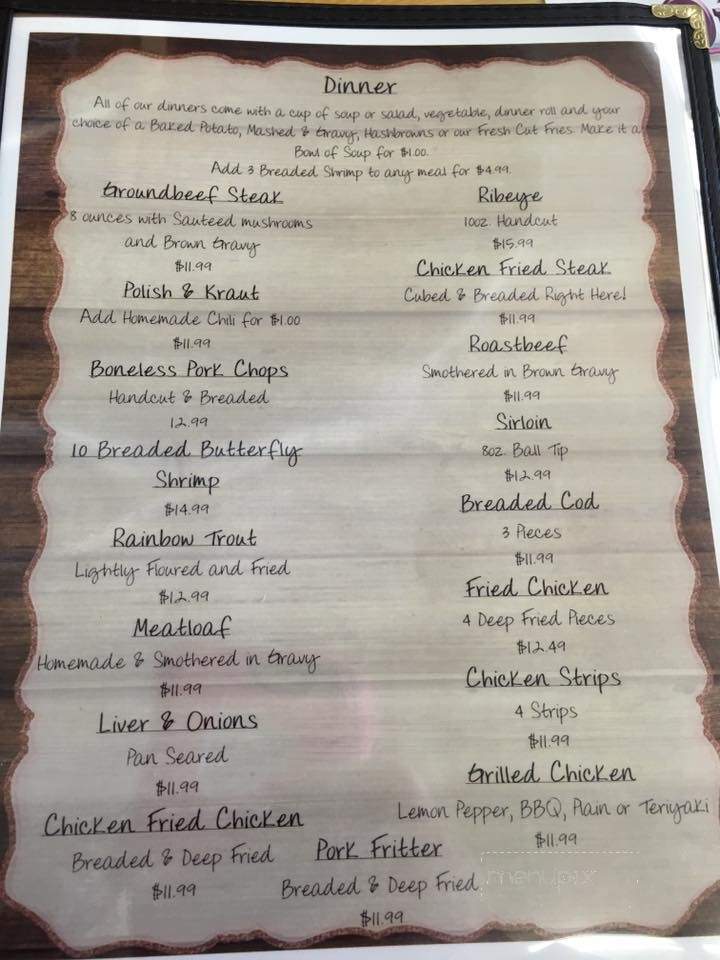 Dinner
All of our dinners come with a cup of soup or salad, vegetable, dinner roll and your
choice of a Baked Potato, Mashed & Gravy, Hashbrowns or our Fresh Cut Fries. Make it a
Bowl of Soup for $1.00.
Add 3 Breaded Shrimp to any meal for $4.99.
Groundbeef Steak
8 ounces with Sauteed mushrooms
and Brown Gravy
$11.99
Polish & Kraut
Add Homemade Chili for $1.00
$11.99
Boneless Pork Chops
Handcut & Breaded
12.99
10 Breaded Butterfly
Shrimp
$14.99
Rainbow Trout
Lightly Floured and Fried
$12.99
Meatloaf
Homemade & Smothered in Gravy
$11.99
Liver & Onions
Pan Seared
$11.99
Chicken Fried Chicken
Breaded & Deep Fried
$11.99
Ribeye
10oz. Handcut
$15.99
Chicken Fried Steak
Cubed & Breaded Right Here!
$11.99
Roastbeef
Smothered in Brown Gravy
$11.99
Sirloin
8oz. Ball Tip
$12.99
Breaded Cod
3 Pieces
$11.99
Fried Chicken
4 Deep Fried Pieces
$12.49
Chicken Strips
4 Strips
$11.99
Grilled Chicken
Lemon Pepper, BBQ, Plain or Teriyaki
$11.99
Pork Fritter
Breaded & Deep Fried
$11.99
menupix